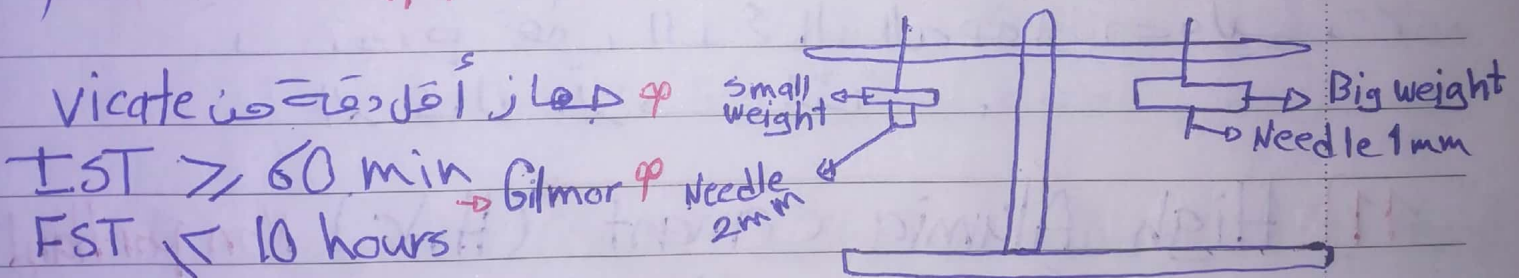 جهاز أقل دقة من Vicate
IST ≥ 60 min → Gilmor
FST ≤ 10 hours
small
weight
Needle
2mm
Big weight
Needle 1mm